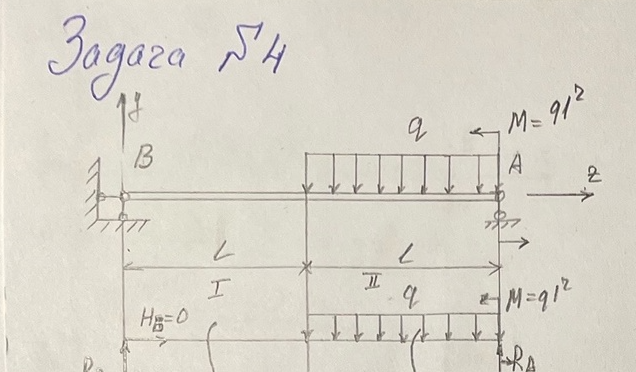 Задача №4
y
q
M = ql²
B
A
z
L
L
I
II
q
M = ql²
H_B=0
R_A